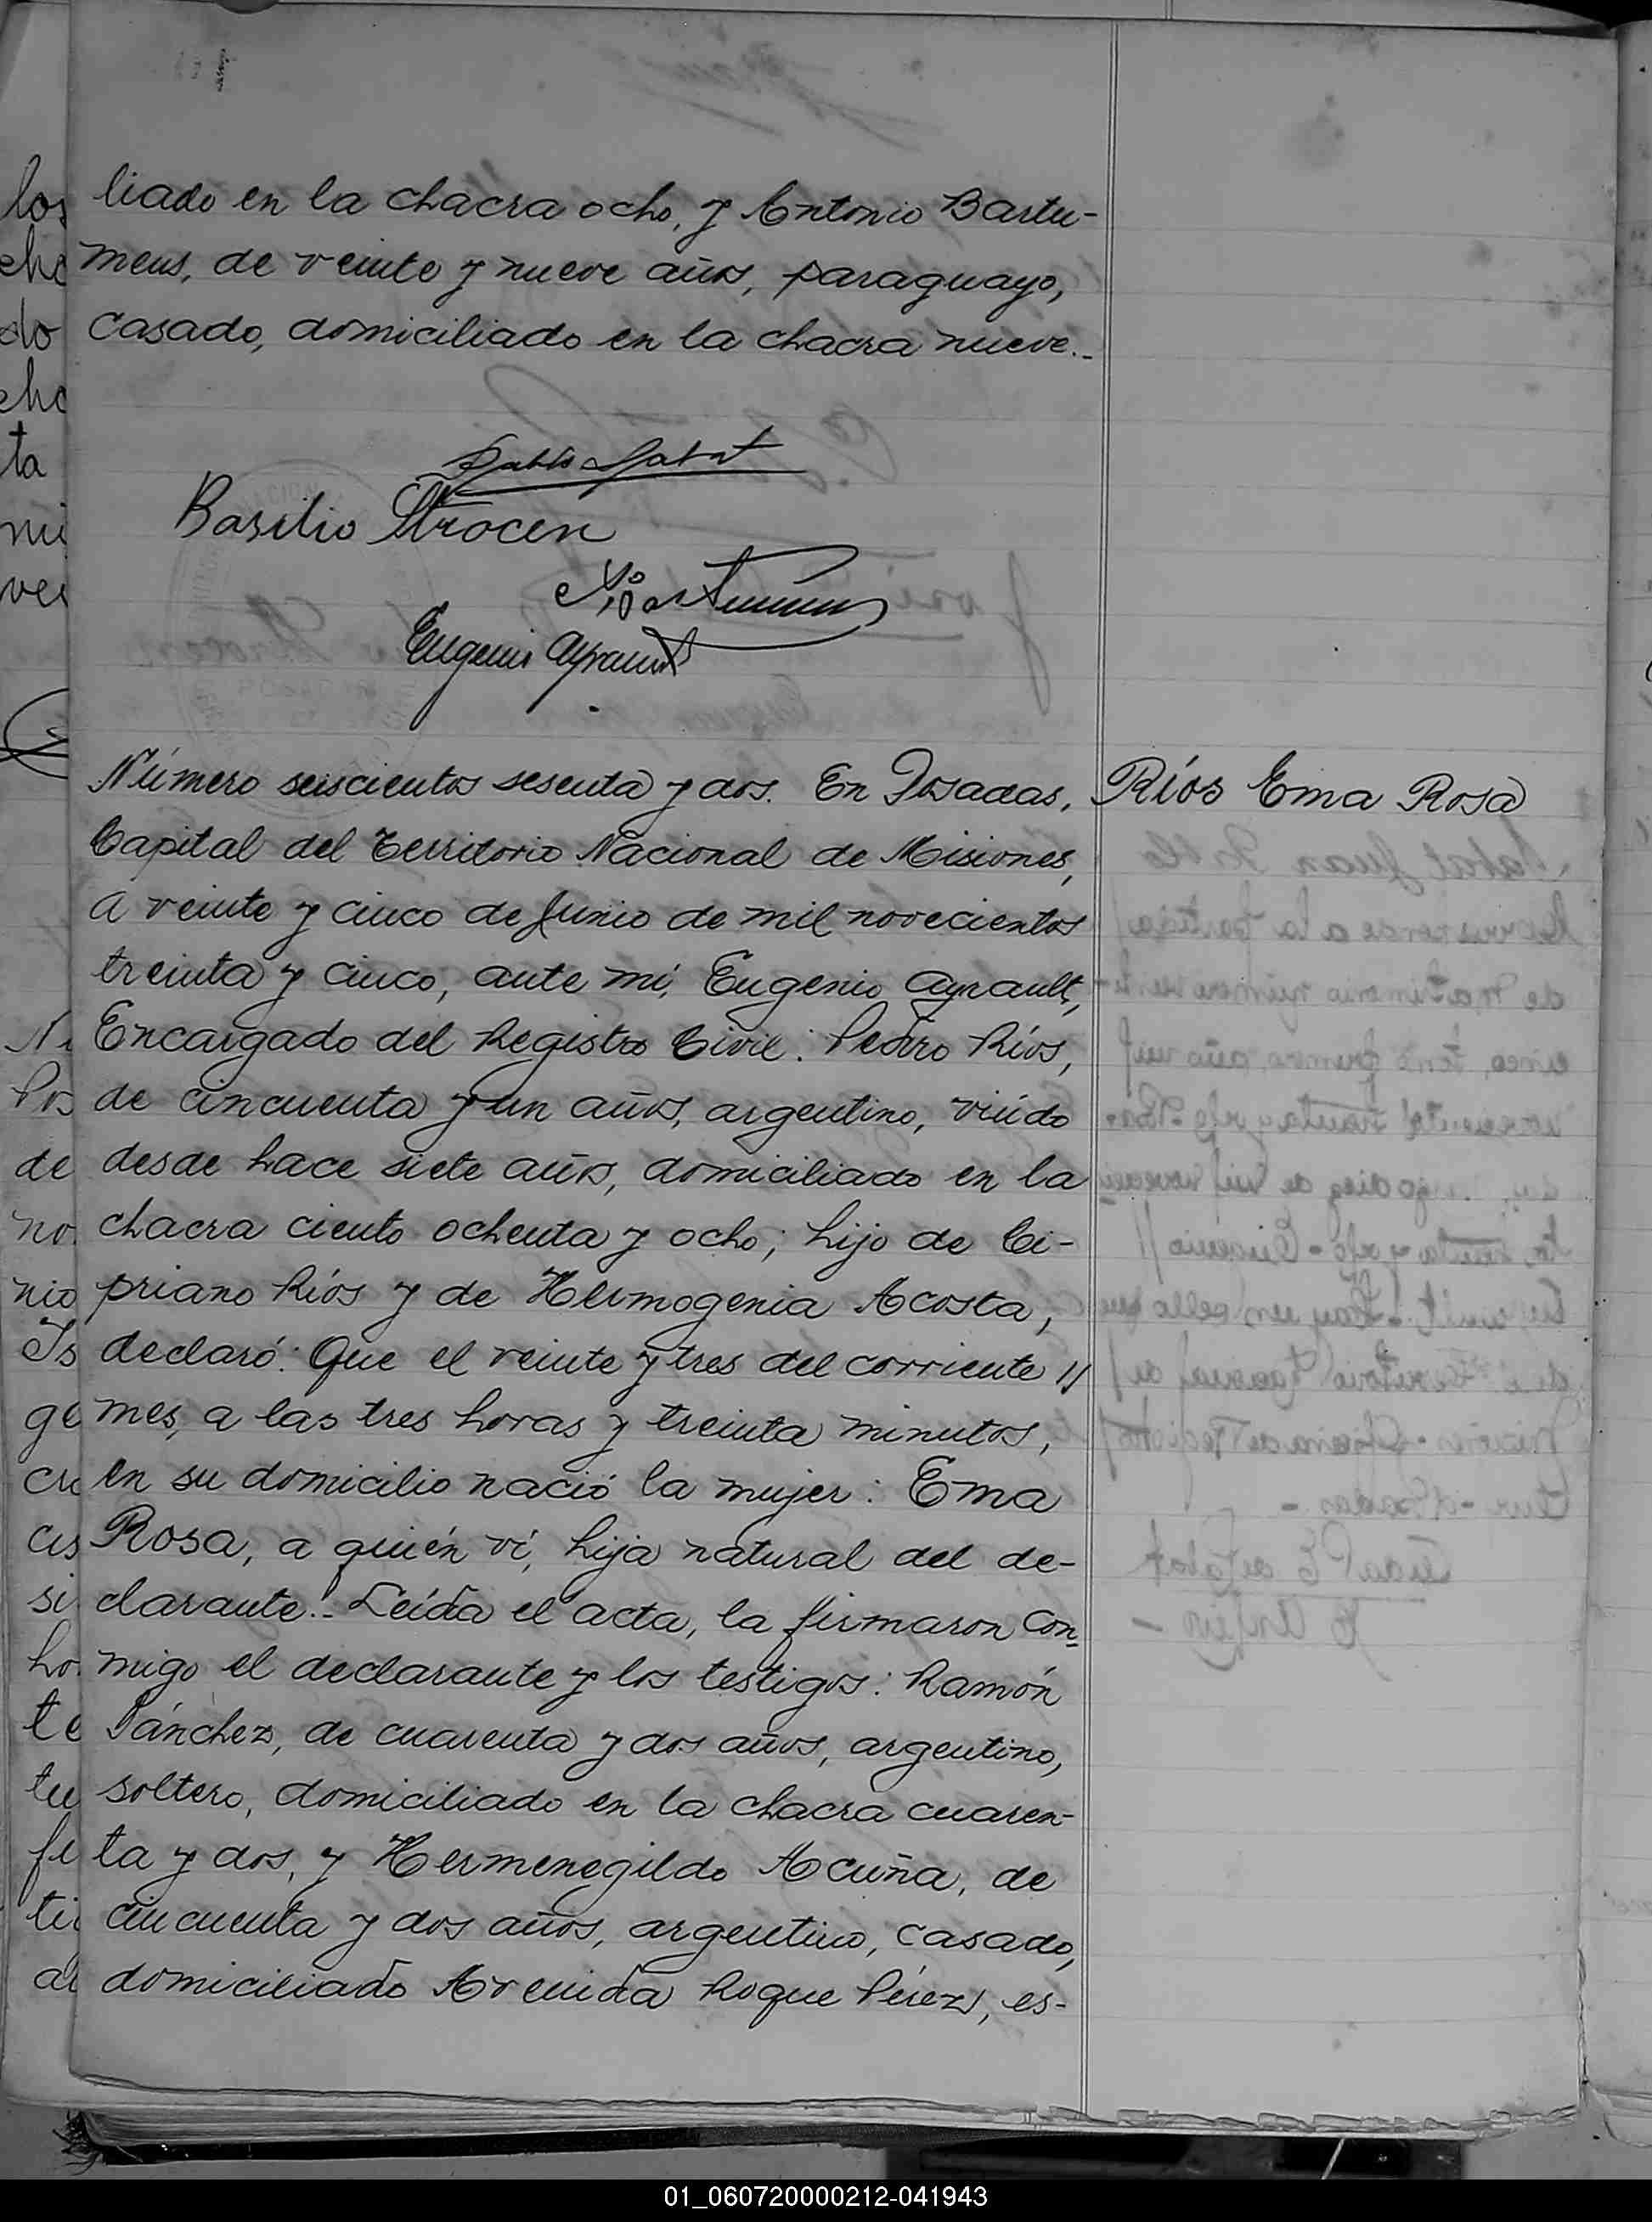 liado en la chacra ocho, y Antonio Bartu-
meus, de veinte y nueve años, paraguayo,
casado, domiciliado en la chacra nueve.-
Pablo Sabat
Basilio Strocen
Eugenio Ayrault
Número seiscientos sesenta y dos. En Posadas,
Ríos Ema Rosa
Capital del Territorio Nacional de Misiones,
a veinte y cinco de Junio de mil novecientos
treinta y cinco, ante mí, Eugenio Ayrault,
Encargado del Registro Civil: Pedro Ríos,
de cincuenta y un años, argentino, viúdo
desde hace siete años, domiciliado en la
chacra ciento ochenta y ocho; hijo de Ci-
priano Ríos y de Hermogenia Acosta,
declaró: Que el veinte y tres del corriente //
mes, a las tres horas y treinta minutos,
en su domicilio nació la mujer: Ema
Rosa, a quién ví, hija natural del de-
clarante.- Leída el acta, la firmaron con-
migo el declarante y los testigos: Ramón
Sánchez, de cuarenta y dos años, argentino,
soltero, domiciliado en la chacra cuaren-
ta y dos, y Hermenegildo Acuña, de
cincuenta y dos años, argentino, casado,
domiciliado Avenida Roque Pérez, es-
01_060720000212-041943